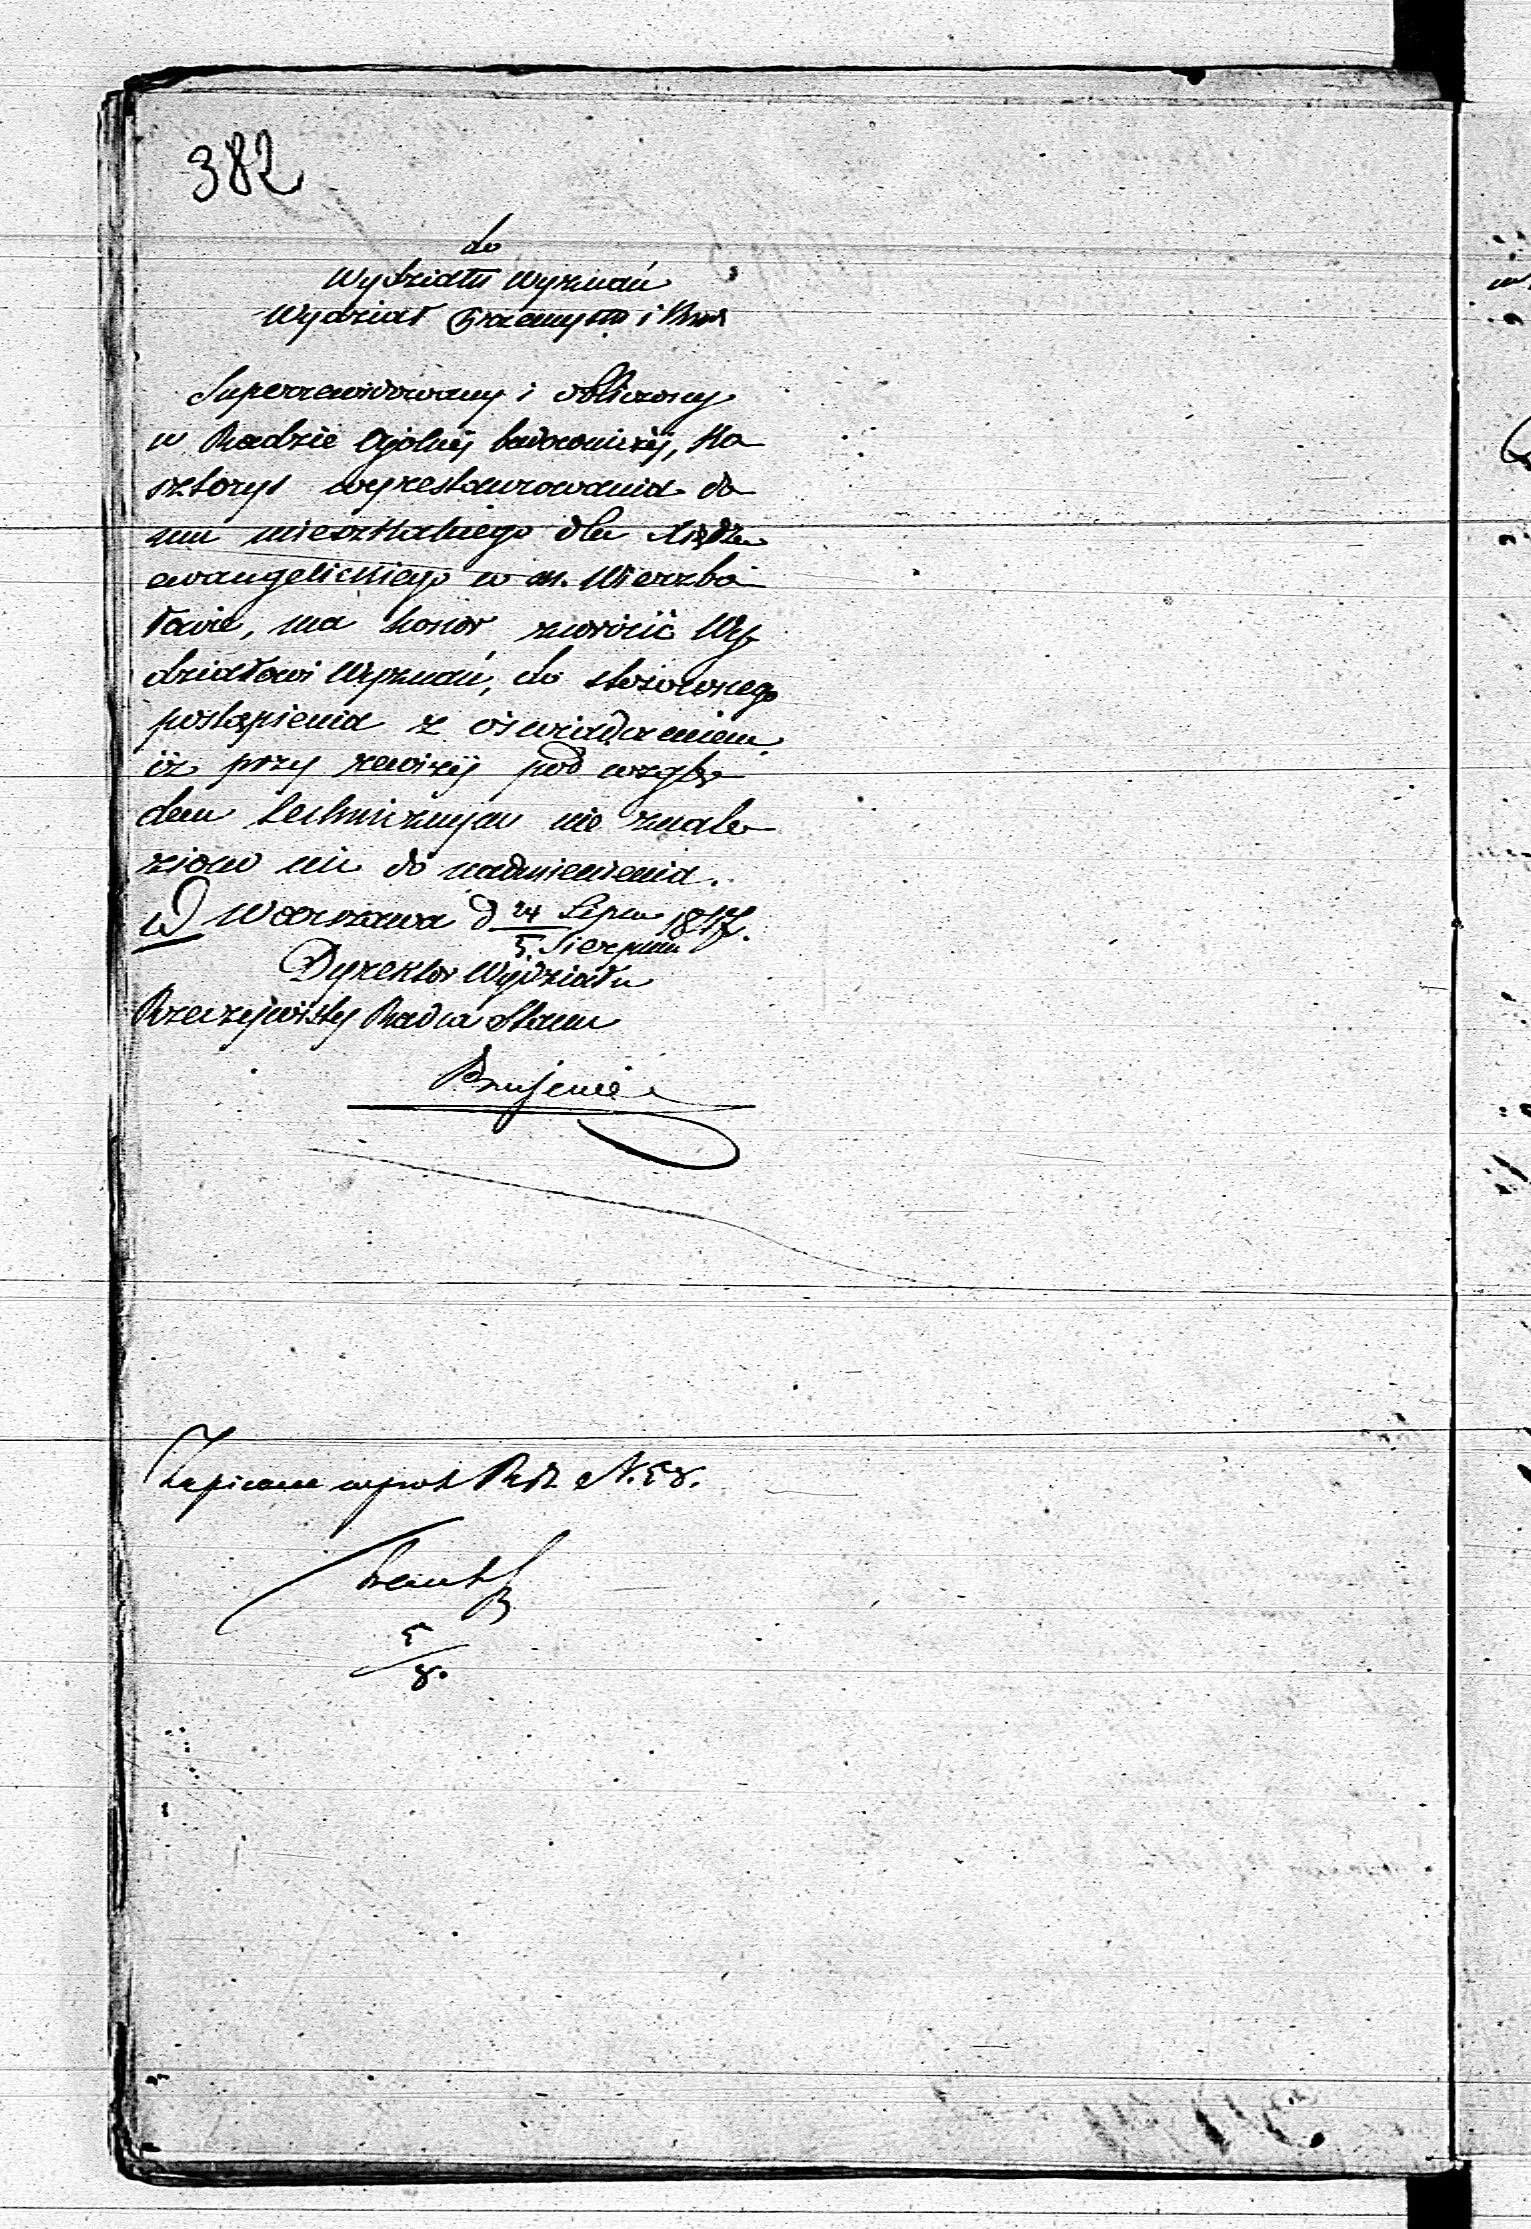 382
do
Wydziału Wyznań
Wydział Przemysłu i Kun
Superrewidowany i obliczony
w Radzie Ogólnéj budowniczéj, Ko
sztorys wyrestaurowania do
mu mieszkalnego dla Xiędza
ewangelickiego w m. Wierzbo
łowie, ma honor zwrócić Wy
działowi Wyznań, do stosownego
postąpienia z oświadczeniem
iż przy rewizyi pod wzglę
dem technicznym nie znale
ziono nic do nadmienienia.
w Warszawa d 24 Lipca 1847.
5 Sierpnia
Dyrektor Wydziału
Rzeczywisty Radca Stanu
Zapisane w prot N. 58.
5
8.